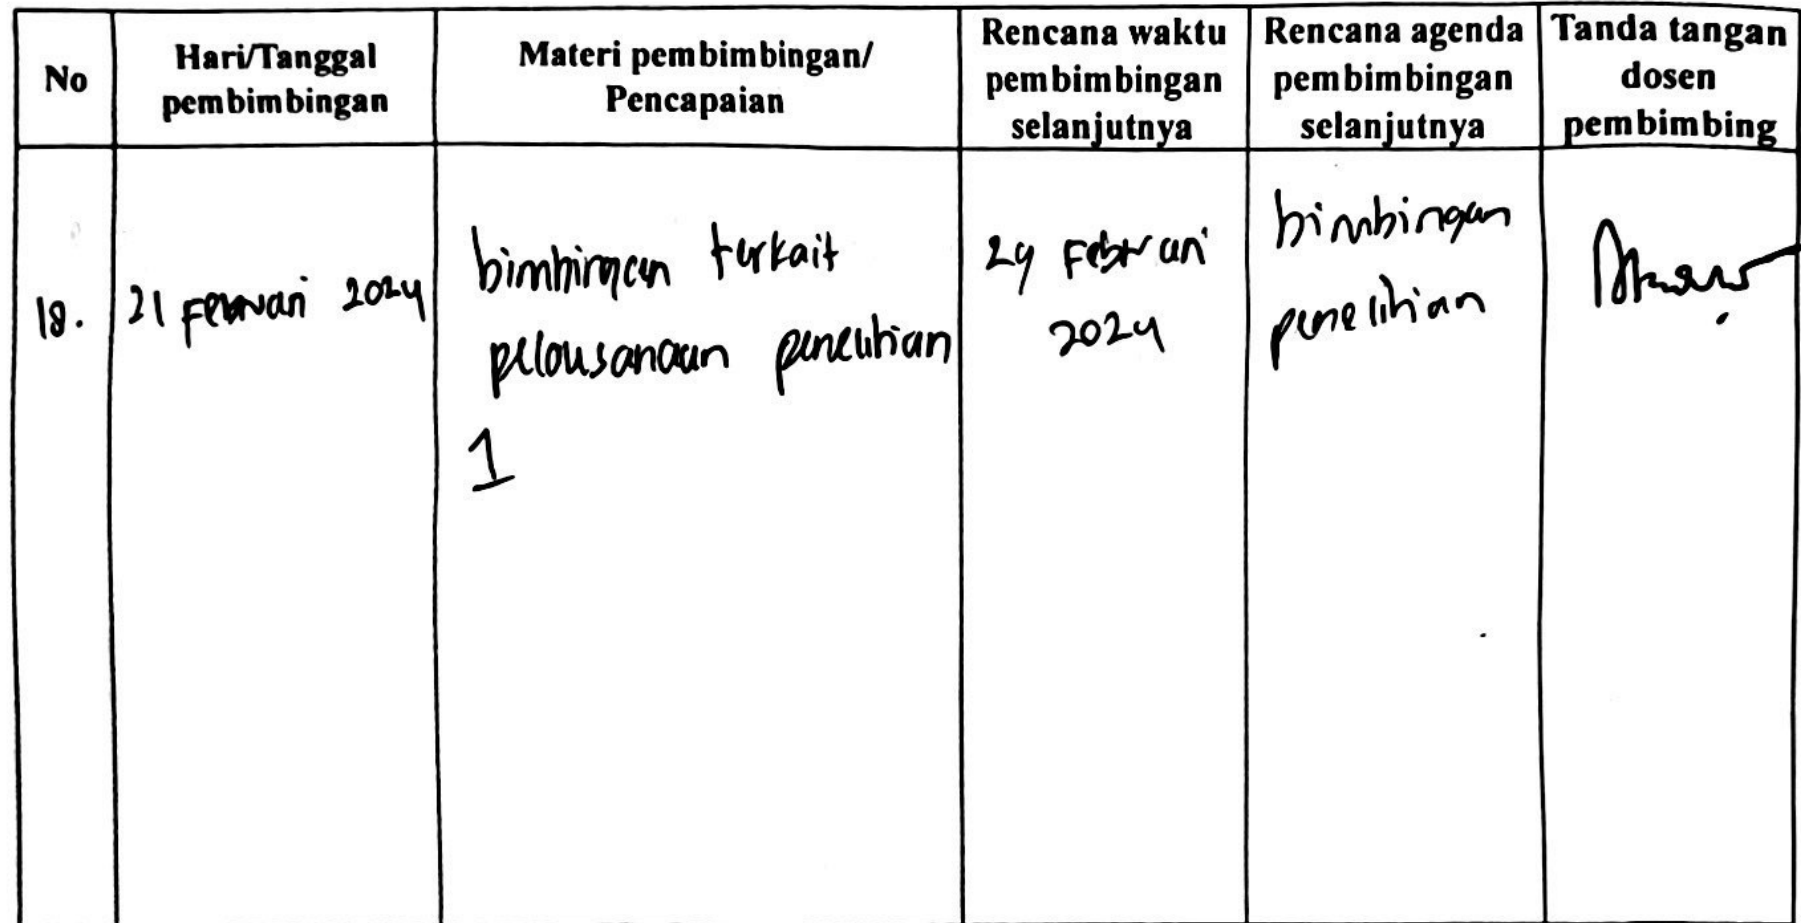 No
Hari/Tanggal
pembimbingan
Materi pembimbingan/
Pencapaian
Rencana waktu
pembimbingan
selanjutnya
Rencana agenda
pembimbingan
selanjutnya
Tanda tangan
dosen
pembimbing
18.
21 Februari 2024
bimbingan terkait
pelaksanaan penelitian
1
29 Februari
2024
bimbingan
penelitian